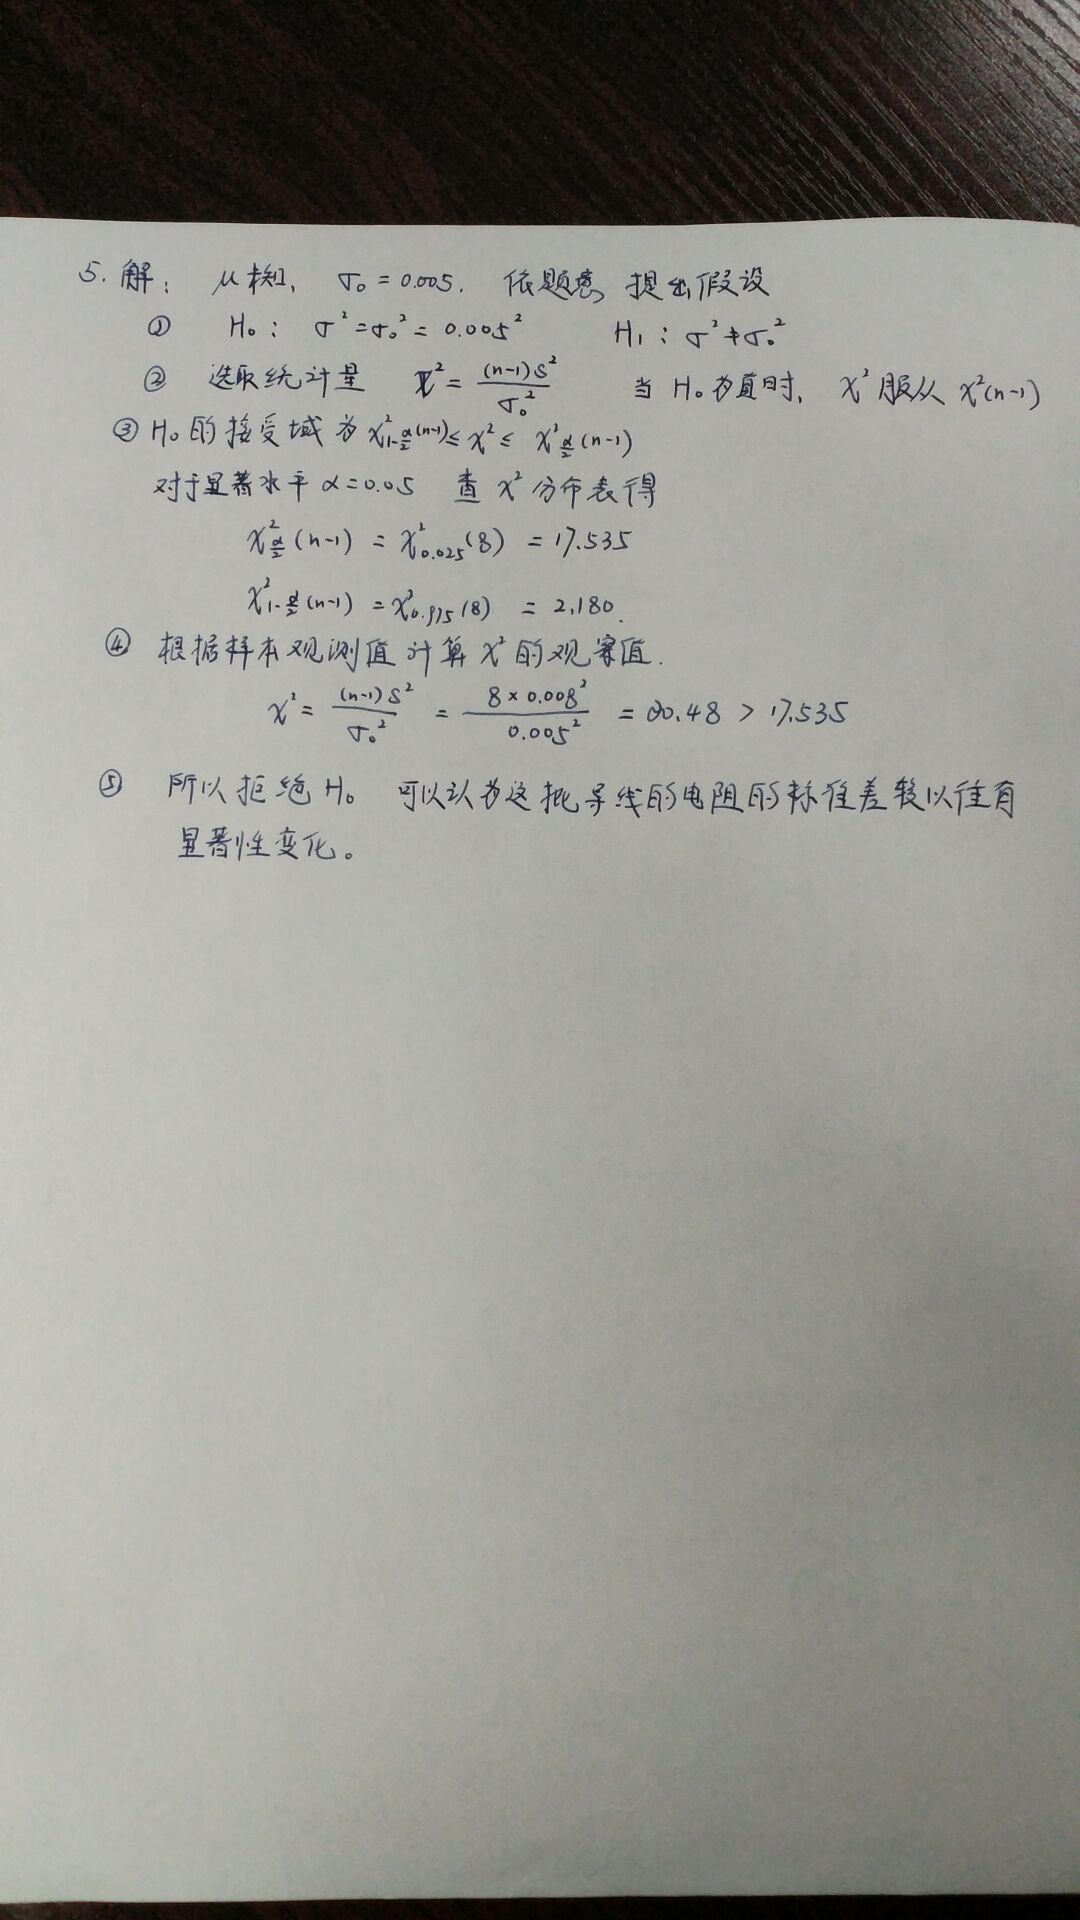 5. 解: μ未知, σ₀ = 0.005. 依题意 提出假设
① H₀: σ² = σ₀² = 0.005² H₁: σ² ≠ σ₀²
② 选取统计量 χ² = (n-1)S² / σ₀² 当 H₀ 为真时, χ² 服从 χ²(n-1)
③ H₀ 的接受域为 χ²_{1-α/2}(n-1) ≤ χ² ≤ χ²_{α/2}(n-1)
对于显著水平 α = 0.05 查 χ² 分布表得
χ²_{α/2}(n-1) = χ²_{0.025}(8) = 17.535
χ²_{1-α/2}(n-1) = χ²_{0.975}(8) = 2.180.
④ 根据样本观测值计算 χ² 的观察值.
χ² = (n-1)S² / σ₀² = 8 × 0.008² / 0.005² = 20.48 > 17.535
⑤ 所以拒绝 H₀ 可以认为这批导线的电阻的标准差较以往有
显著性变化。